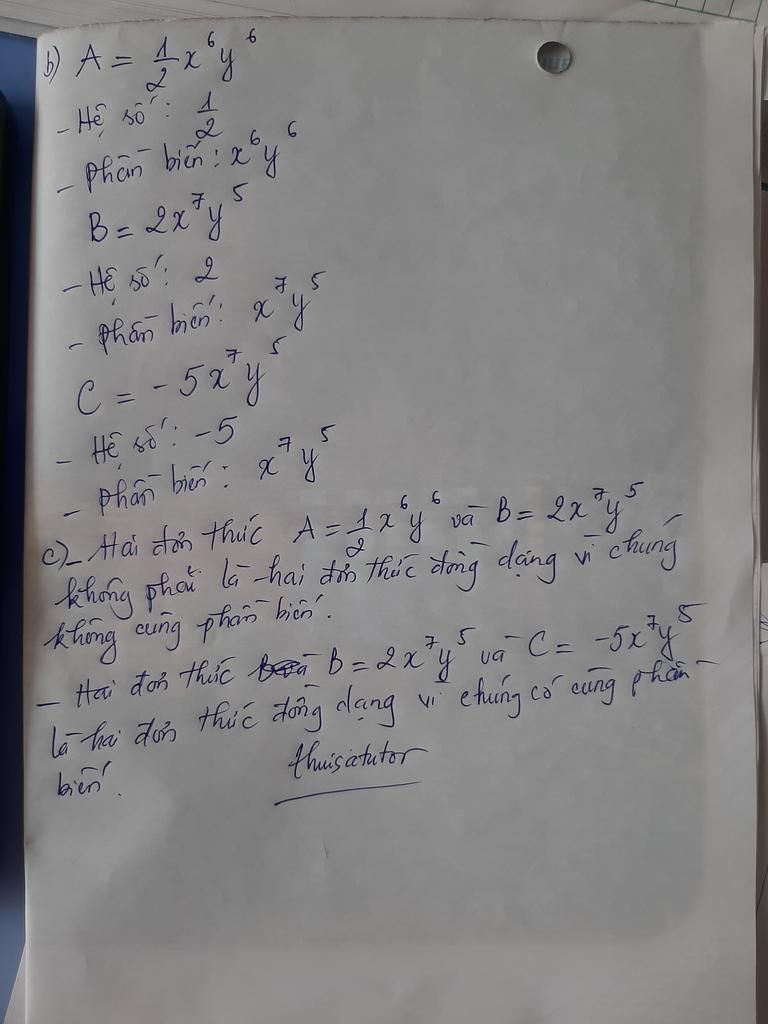 b) A = 1/2 x⁶y⁶
- Hệ số: 1/2
- Phần biến: x⁶y⁶
B = 2x⁷y⁵
- Hệ số: 2
- Phần biến: x⁷y⁵
C = - 5x⁷y⁵
- Hệ số: -5
- Phần biến: x⁷y⁵
c) - Hai đơn thức A = 1/2 x⁶y⁶ và B = 2x⁷y⁵
không phải là hai đơn thức đồng dạng vì chúng
không cùng phần biến.
- Hai đơn thức B = 2x⁷y⁵ và C = -5x⁷y⁵
là hai đơn thức đồng dạng vì chúng có cùng phần
biến.
thuisatutor